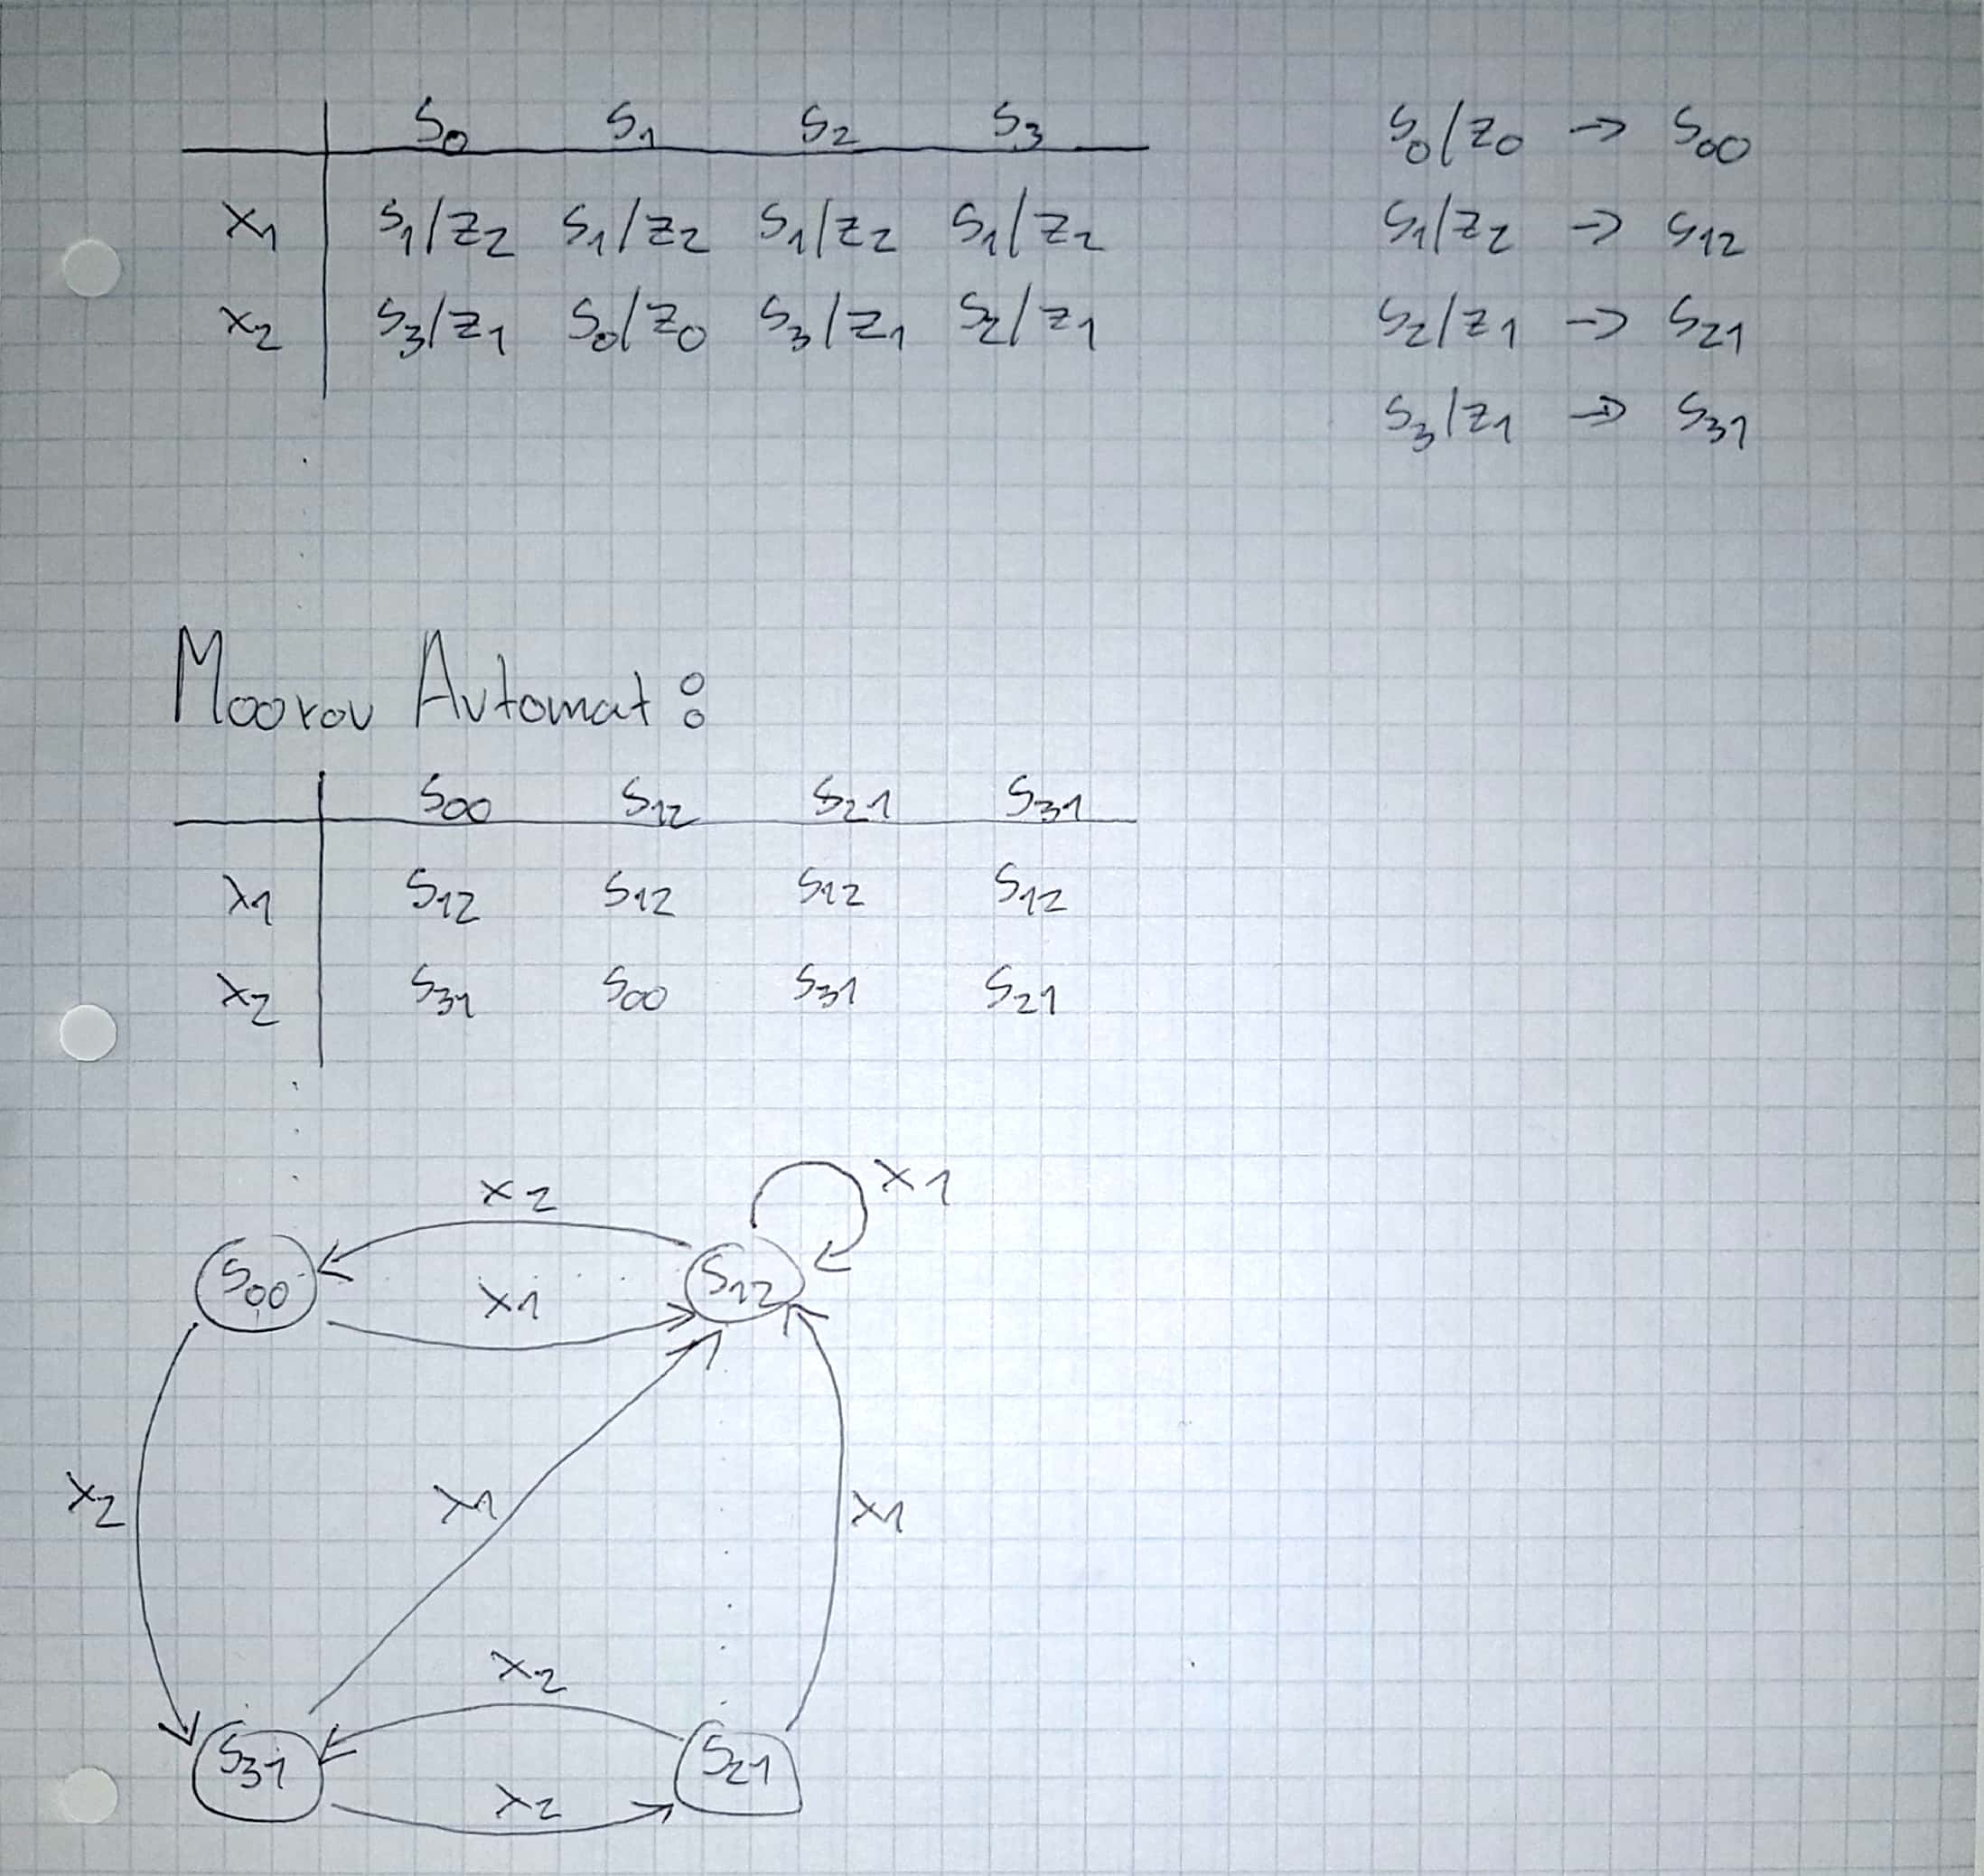 S0 S1 S2 S3
x1 S1/z2 S1/z2 S1/z2 S1/z2
x2 S3/z1 S0/z0 S3/z1 S2/z1
S0/z0 → S00
S1/z2 → S12
S2/z1 → S21
S3/z1 → S31
Moorov Avtomat:
S00 S12 S21 S31
x1 S12 S12 S12 S12
x2 S31 S00 S31 S21
x2 x1
S00 S12
x1
x2 x1 x1
x2
S31 S21
x2